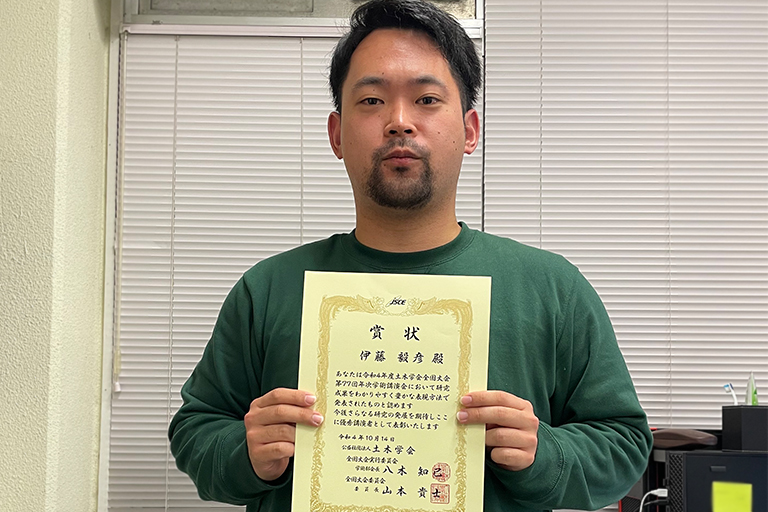 JSCE
賞状
伊藤 毅彦 殿
あなたは令和4年度土木学会全国大会
第77回年次学術講演会において研究
成果をわかりやすく豊かな表現方法で
発表されたものと認めます
今後さらなる研究の発展を期待しここ
に優秀講演者として表彰いたします
令和4年10月14日
公益社団法人 土木学会
全国大会実行委員会
学術部会長 八木 知己
全国大会委員会
委員長 山本 貴士